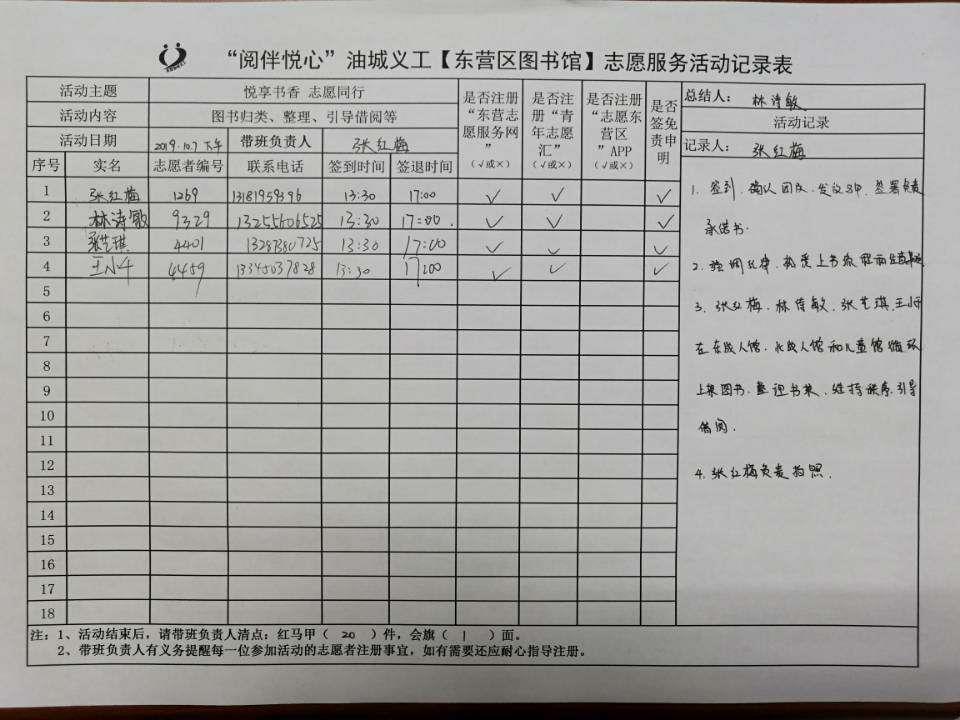 “阅伴悦心”油城义工【东营区图书馆】志愿服务活动记录表
活动主题 悦享书香 志愿同行
活动内容 图书归类、整理、引导借阅等
活动日期 2019.10.7 下午 带班负责人 张红梅
序号 实名 志愿者编号 联系电话 签到时间 签退时间 是否注册“东营志愿服务网”(√或×) 是否注册“青年志愿汇”(√或×) 是否注册“志愿东营区”APP(√或×) 是否签免责申明
1 张红梅 1269 13181959396 13:30 17:00 √ √ √
2 林诗敏 9329 13255606525 13:30 17:00 √ √ √
3 张艺琪 4401 13287380725 13:30 17:00 √ √ √
4 王小 4459 13345037828 13:30 17:00 √ √ √
5
6
7
8
9
10
11
12
13
14
15
16
17
18
总结人： 林诗敏
活动记录
记录人： 张红梅
1. 签到，确认团队，签署免责
承诺书.
2. 强调纪律，
3. 张红梅，林诗敏，张艺琪，王
在成人馆，成人馆和儿童馆
上架图书，整理书架，维持秩序，引导
借阅.
4. 张红梅负责拍照.
注：1、活动结束后，请带班负责人清点：红马甲（ 20 ）件，会旗（ 1 ）面。
2、带班负责人有义务提醒每一位参加活动的志愿者注册事宜，如有需要还应耐心指导注册。